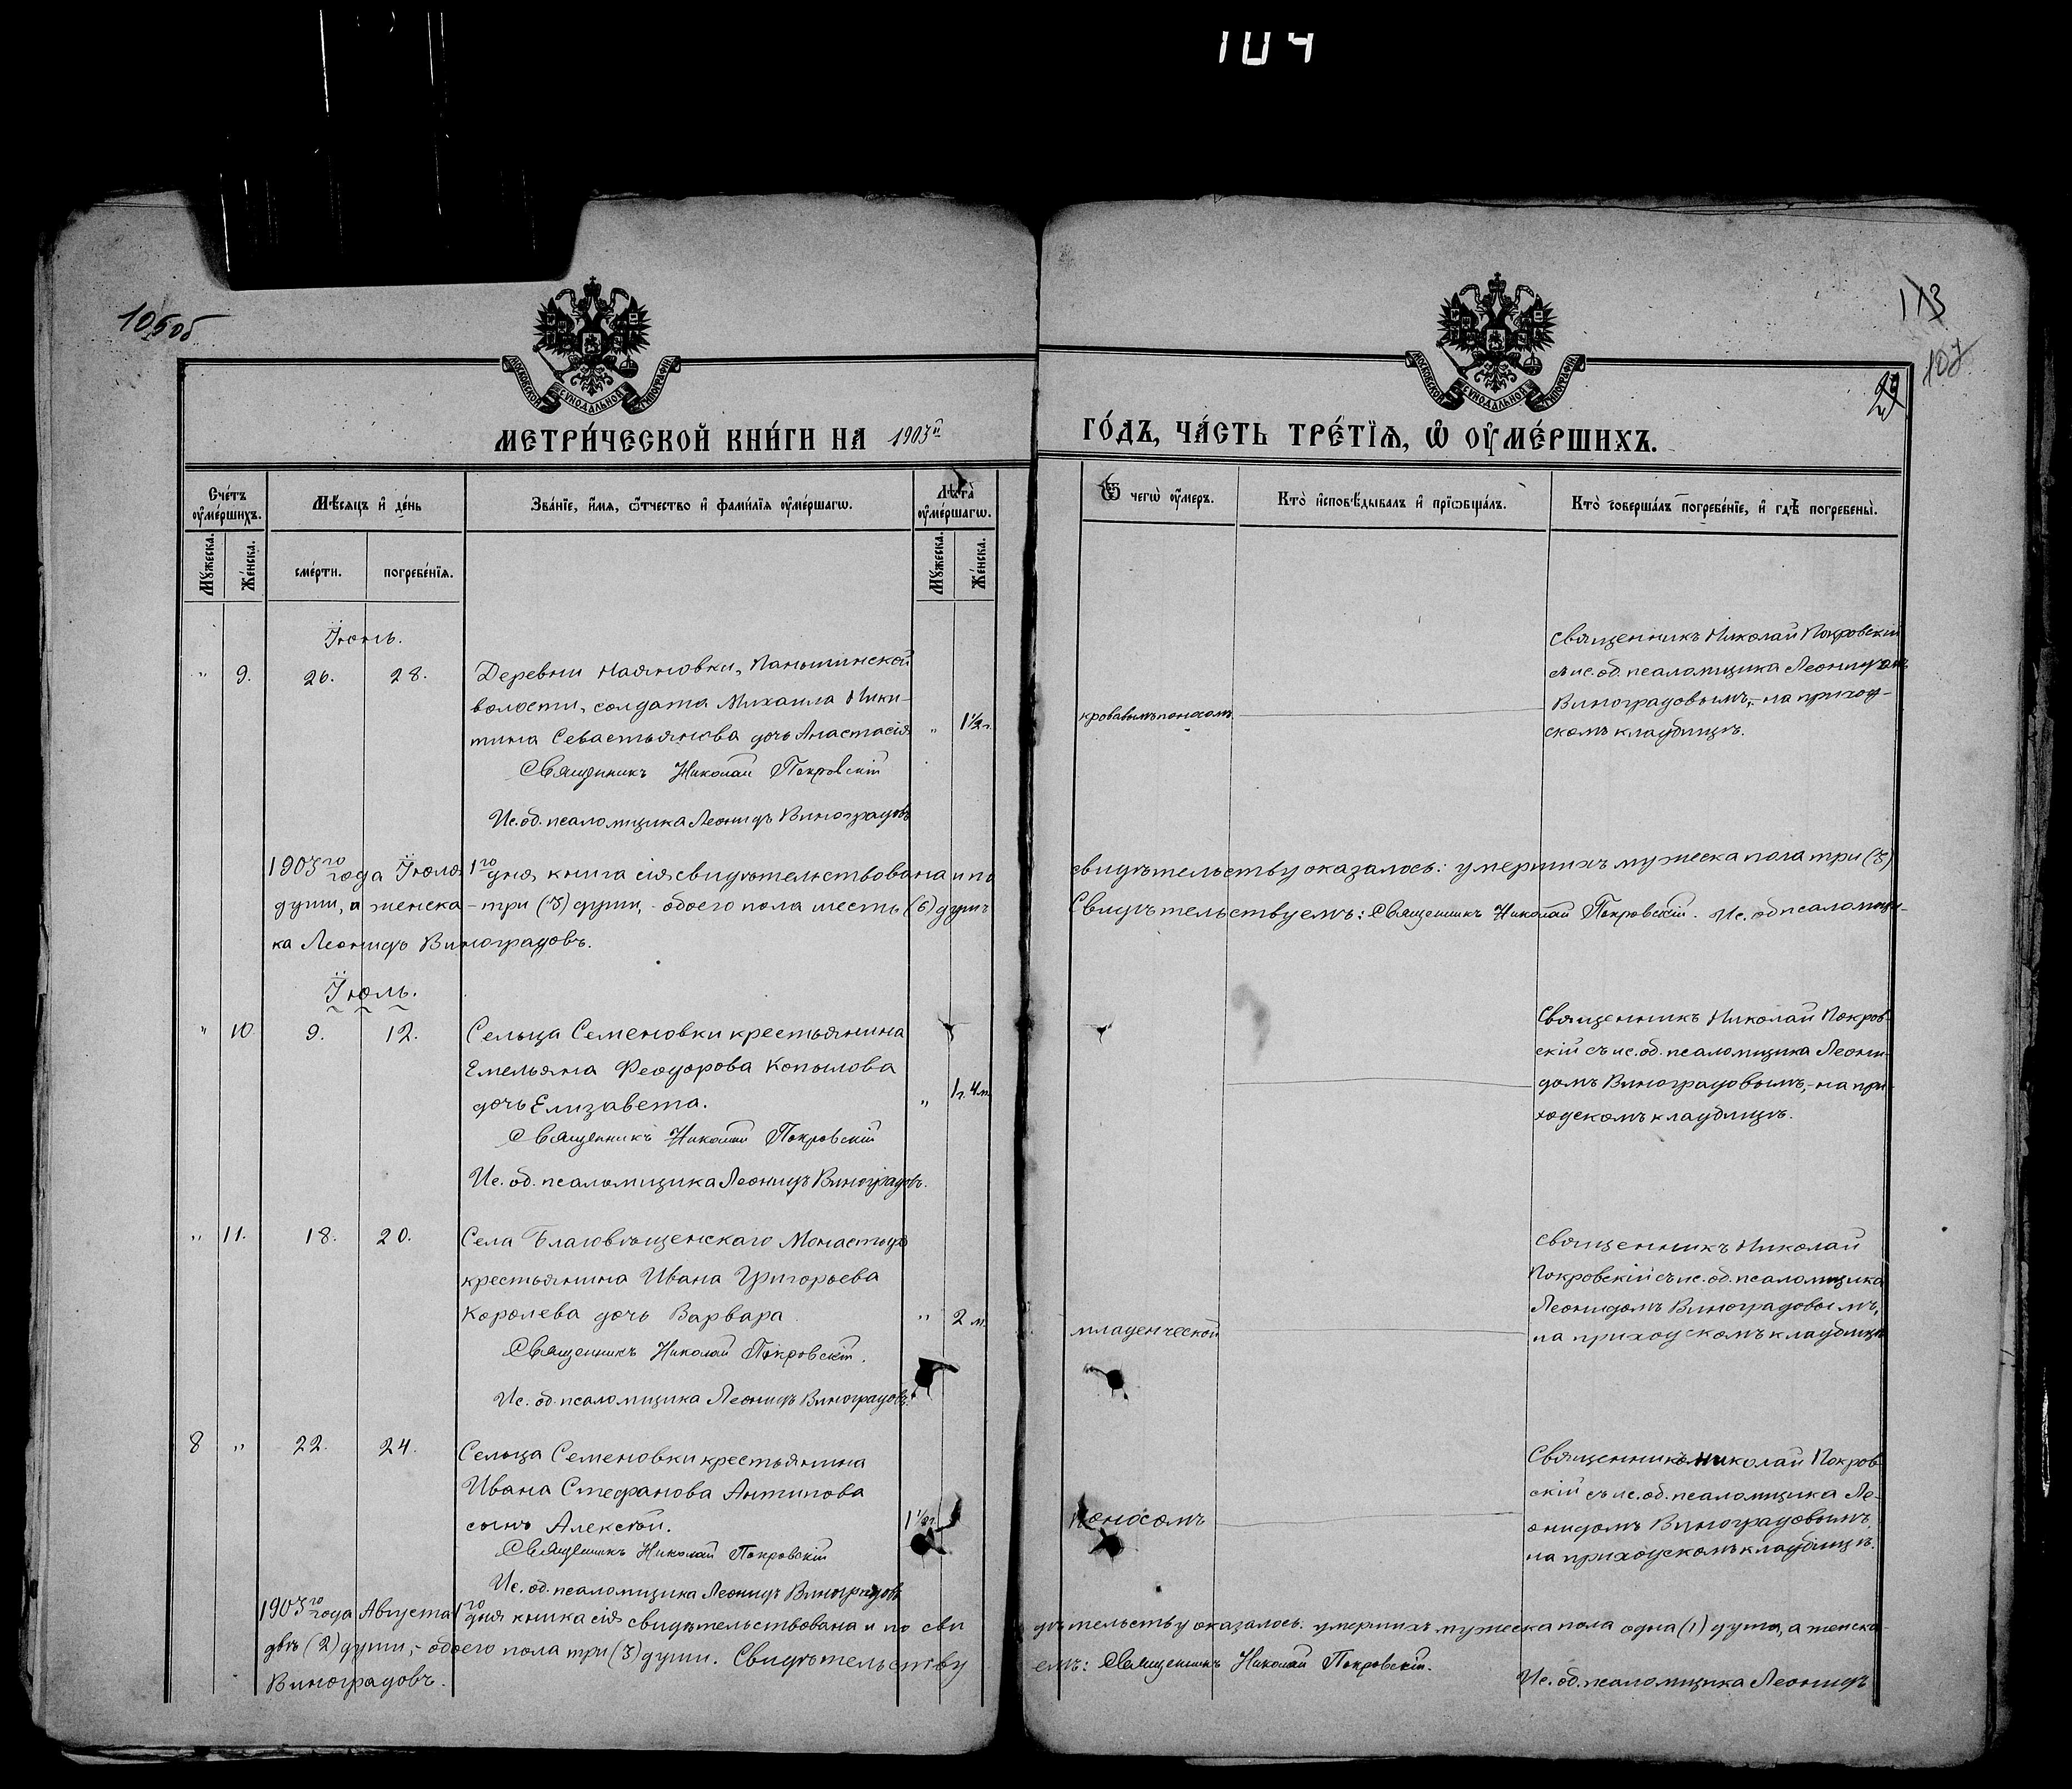 104
105об
113
107
МОСКОВСКОЙ СѴНОДАЛЬНОЙ ТИПОГРАФІИ
МОСКОВСКОЙ СѴНОДАЛЬНОЙ ТИПОГРАФІИ
МЕТРИ́ЧЕСКОЙ КНИ́ГИ НА 1903й ГО́ДЪ, ЧА́СТЬ ТРЕ́ТЇѦ, Ѡ҆ ОУ҆МЕ́РШИХЪ.
Сче́тъ оу҆ме́ршихъ.
Мѣ́сѧцъ и҆ де́нь
Зва́нїе, и҆́мѧ, ѻ҆́тчество и҆ фами́лїѧ оу҆ме́ршагѡ.
Лѣ́та оу҆ме́ршагѡ.
Ѿ чегѡ̀ оу҆́меръ.
Кто̀ и҆сповѣ́дывалъ и҆ прїѡбща́лъ.
Кто̀ соверша́лъ погребе́нїе, и҆ гдѣ̀ погребены̀.
Мꙋ́жеска.
Же́нска.
сме́рти.
погребе́нїѧ.
Мꙋ́жеска.
Же́нска.
Іюнь.
" 9. 26. 28.
Деревни Наяновки, Паньшинской
волости, солдата Михаила Ники-
тина Севастьянова дочь Анастасія
" 1½ г.
Священникъ Николай Покровскій
Ис. об. псаломщика Леонидъ Виноградовъ
кровавымъ поносомъ
Священникъ Николай Покровскій
съ ис. об. псаломщика Леонидомъ
Виноградовымъ, - на приход-
скомъ кладбищѣ.
1903го года Іюля 1го дня книга сія свидѣтельствована и по свидѣтельству оказалось: умершихъ мужеска пола три (3)
души, а женска - три (3) души, - обоего пола шесть (6) душъ Свидѣтельствуемъ: Священникъ Николай Покровскій. Ис. об псаломщи-
ка Леонидъ Виноградовъ.
Іюль.
" 10 9. 12.
Сельца Семеновки крестьянина
Емельяна Феодорова Копылова
дочь Елизавета.
" 1 г. 4 м.
Священникъ Николай Покровскій
Ис. об. псаломщика Леонидъ Виноградовъ.
Священникъ Николай Покров-
скій съ ис. об. псаломщика Леони-
домъ Виноградовымъ, - на при-
ходскомъ кладбищѣ.
" 11. 18. 20.
Села Благовѣщенскаго Монастыря
крестьянина Ивана Григорьева
Королева дочь Варвара
" 2 м.
Священникъ Николай Покровскій.
Ис. об. псаломщика Леонидъ Виноградовъ.
младенческой
Священникъ Николай
Покровскій съ ис. об. псаломщика
Леонидомъ Виноградовымъ,
на приходскомъ кладбищѣ
8 " 22. 24.
Сельца Семеновки крестьянина
Ивана Стефанова Антипова
сынъ Алексѣй.
1½ г.
Священникъ Николай Покровскій
Ис. об. псаломщика Леонидъ Виноградовъ
Поносомъ
Священникъ Николай Покров-
скій съ ис. об. псаломщика Ле-
онидомъ Виноградовымъ,
на приходскомъ кладбищѣ.
1903го года Августа 1го дня книга сія свидѣтельствована и по свидѣтельству оказалось: умершихъ мужеска пола одна (1) душа, а женска
двѣ (2) души, - обоего пола три (3) души. Свидѣтельствуемъ: Священникъ Николай Покровскій. Ис. об. псаломщика Леонидъ
Виноградовъ.